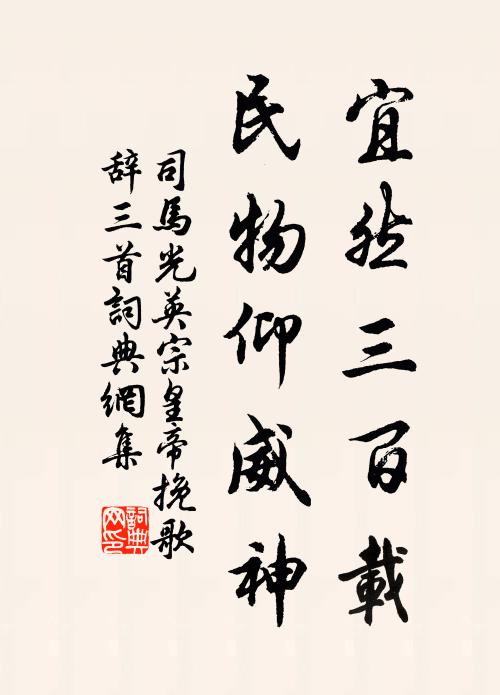 宜然三百載
民物仰威神
司馬光英宗皇帝挽歌
辞三首詞典網集
詞典网印